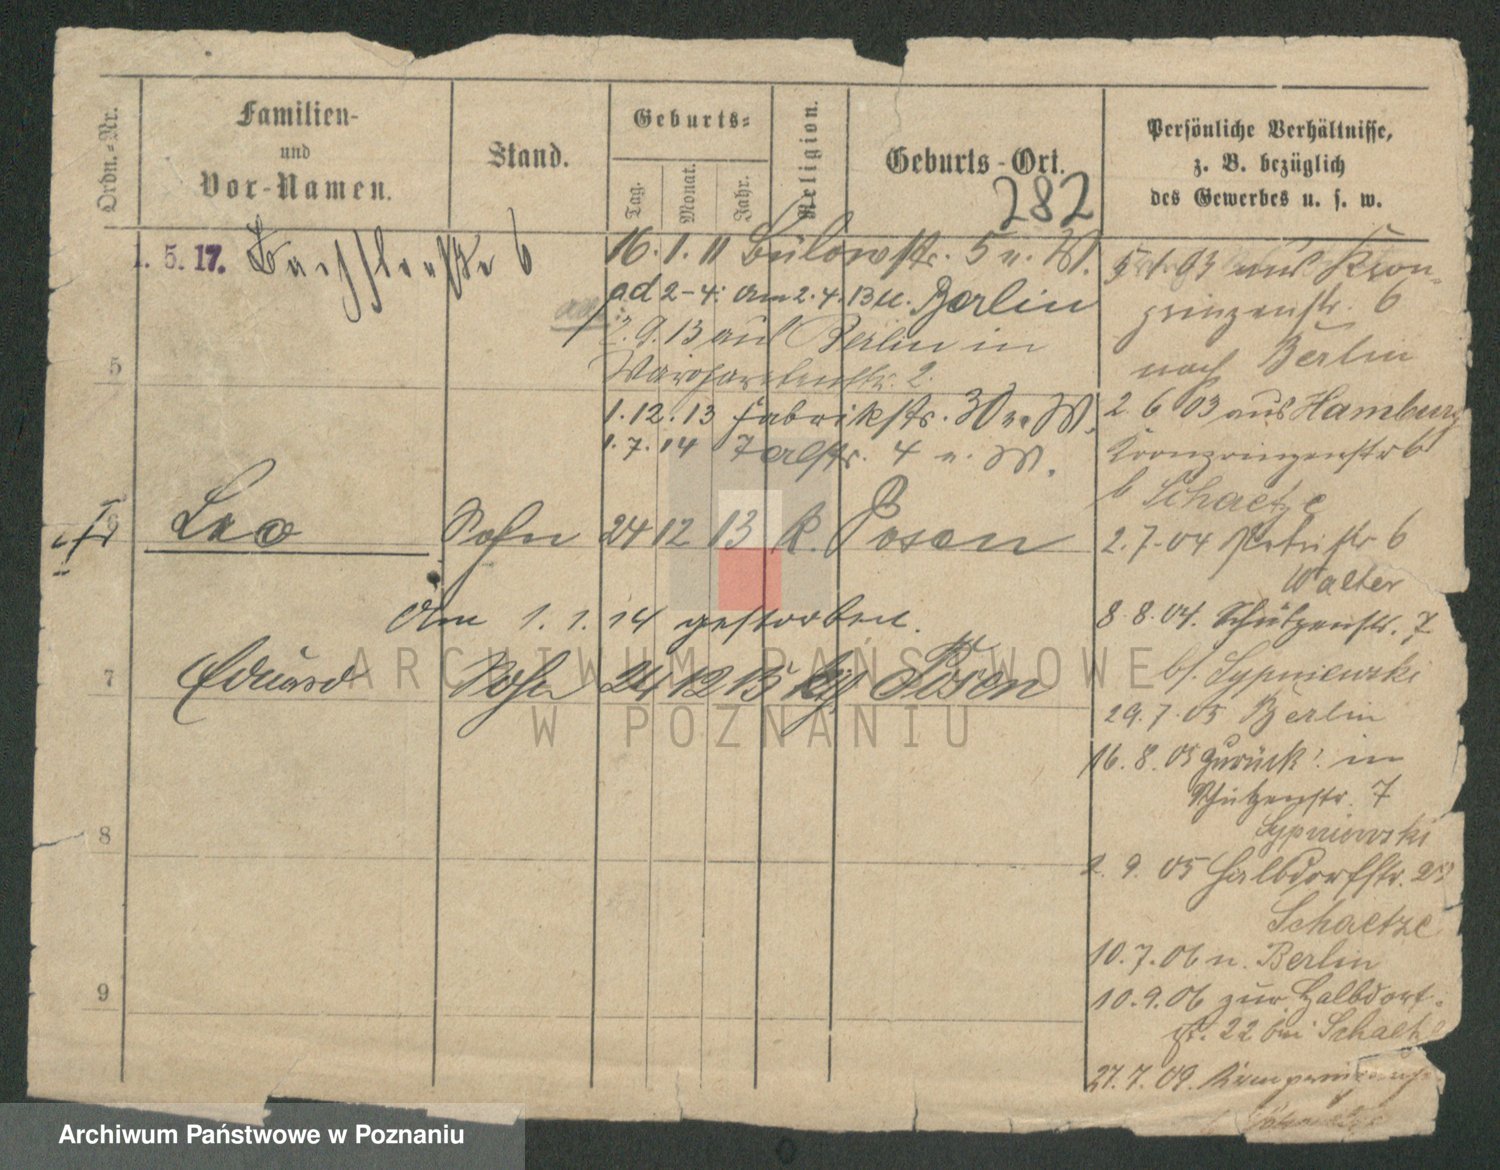 Ordn.-Nr.
Familien-
und
Vor-Namen.
Stand.
Geburts-
Tag.
Monat.
Jahr.
Religion.
Geburts-Ort.
Persönliche Verhältnisse,
z. B. bezüglich
des Gewerbes u. s. w.
282
1. 5. 17.
6
16. 1. 11 Bülowstr. 5 u. W.
ad 2-4: am 2. 4. 13 u. Berlin
2. 9. 13 aus Berlin in
Margaretenstr. 2.
1. 12. 13 Fabrikstr. 30 u. W.
1. 7. 14 Talstr. 4 u. W.
5
6
Leo Sohn 24 12 13 k. Posen
Am 1. 1. 14 gestorben.
7
Eduard Sohn 24 12 15 kg Posen
8
9
aus Kron-
prinzenstr. 6
nach Berlin
2. 6 03 aus Hamburg
Kronprinzenstr 6
b Schaetze
2. 7. 04 Petristr 6
Walter
8. 8. 04. Schützenstr. 7
bf. Sypniewski
29. 7. 05 Berlin
16. 8. 05 zurück in
Schützenstr. 7
Sypniewski
2. 9. 05 Halbdorfstr. 22
Schaetze
10. 7. 06 n. Berlin
10. 9. 06 zur Halbdorf-
st. 22 bei Schaetz
27. 7. 09.
ARCHIWUM PAŃSTWOWE
W POZNANIU
Archiwum Państwowe w Poznaniu